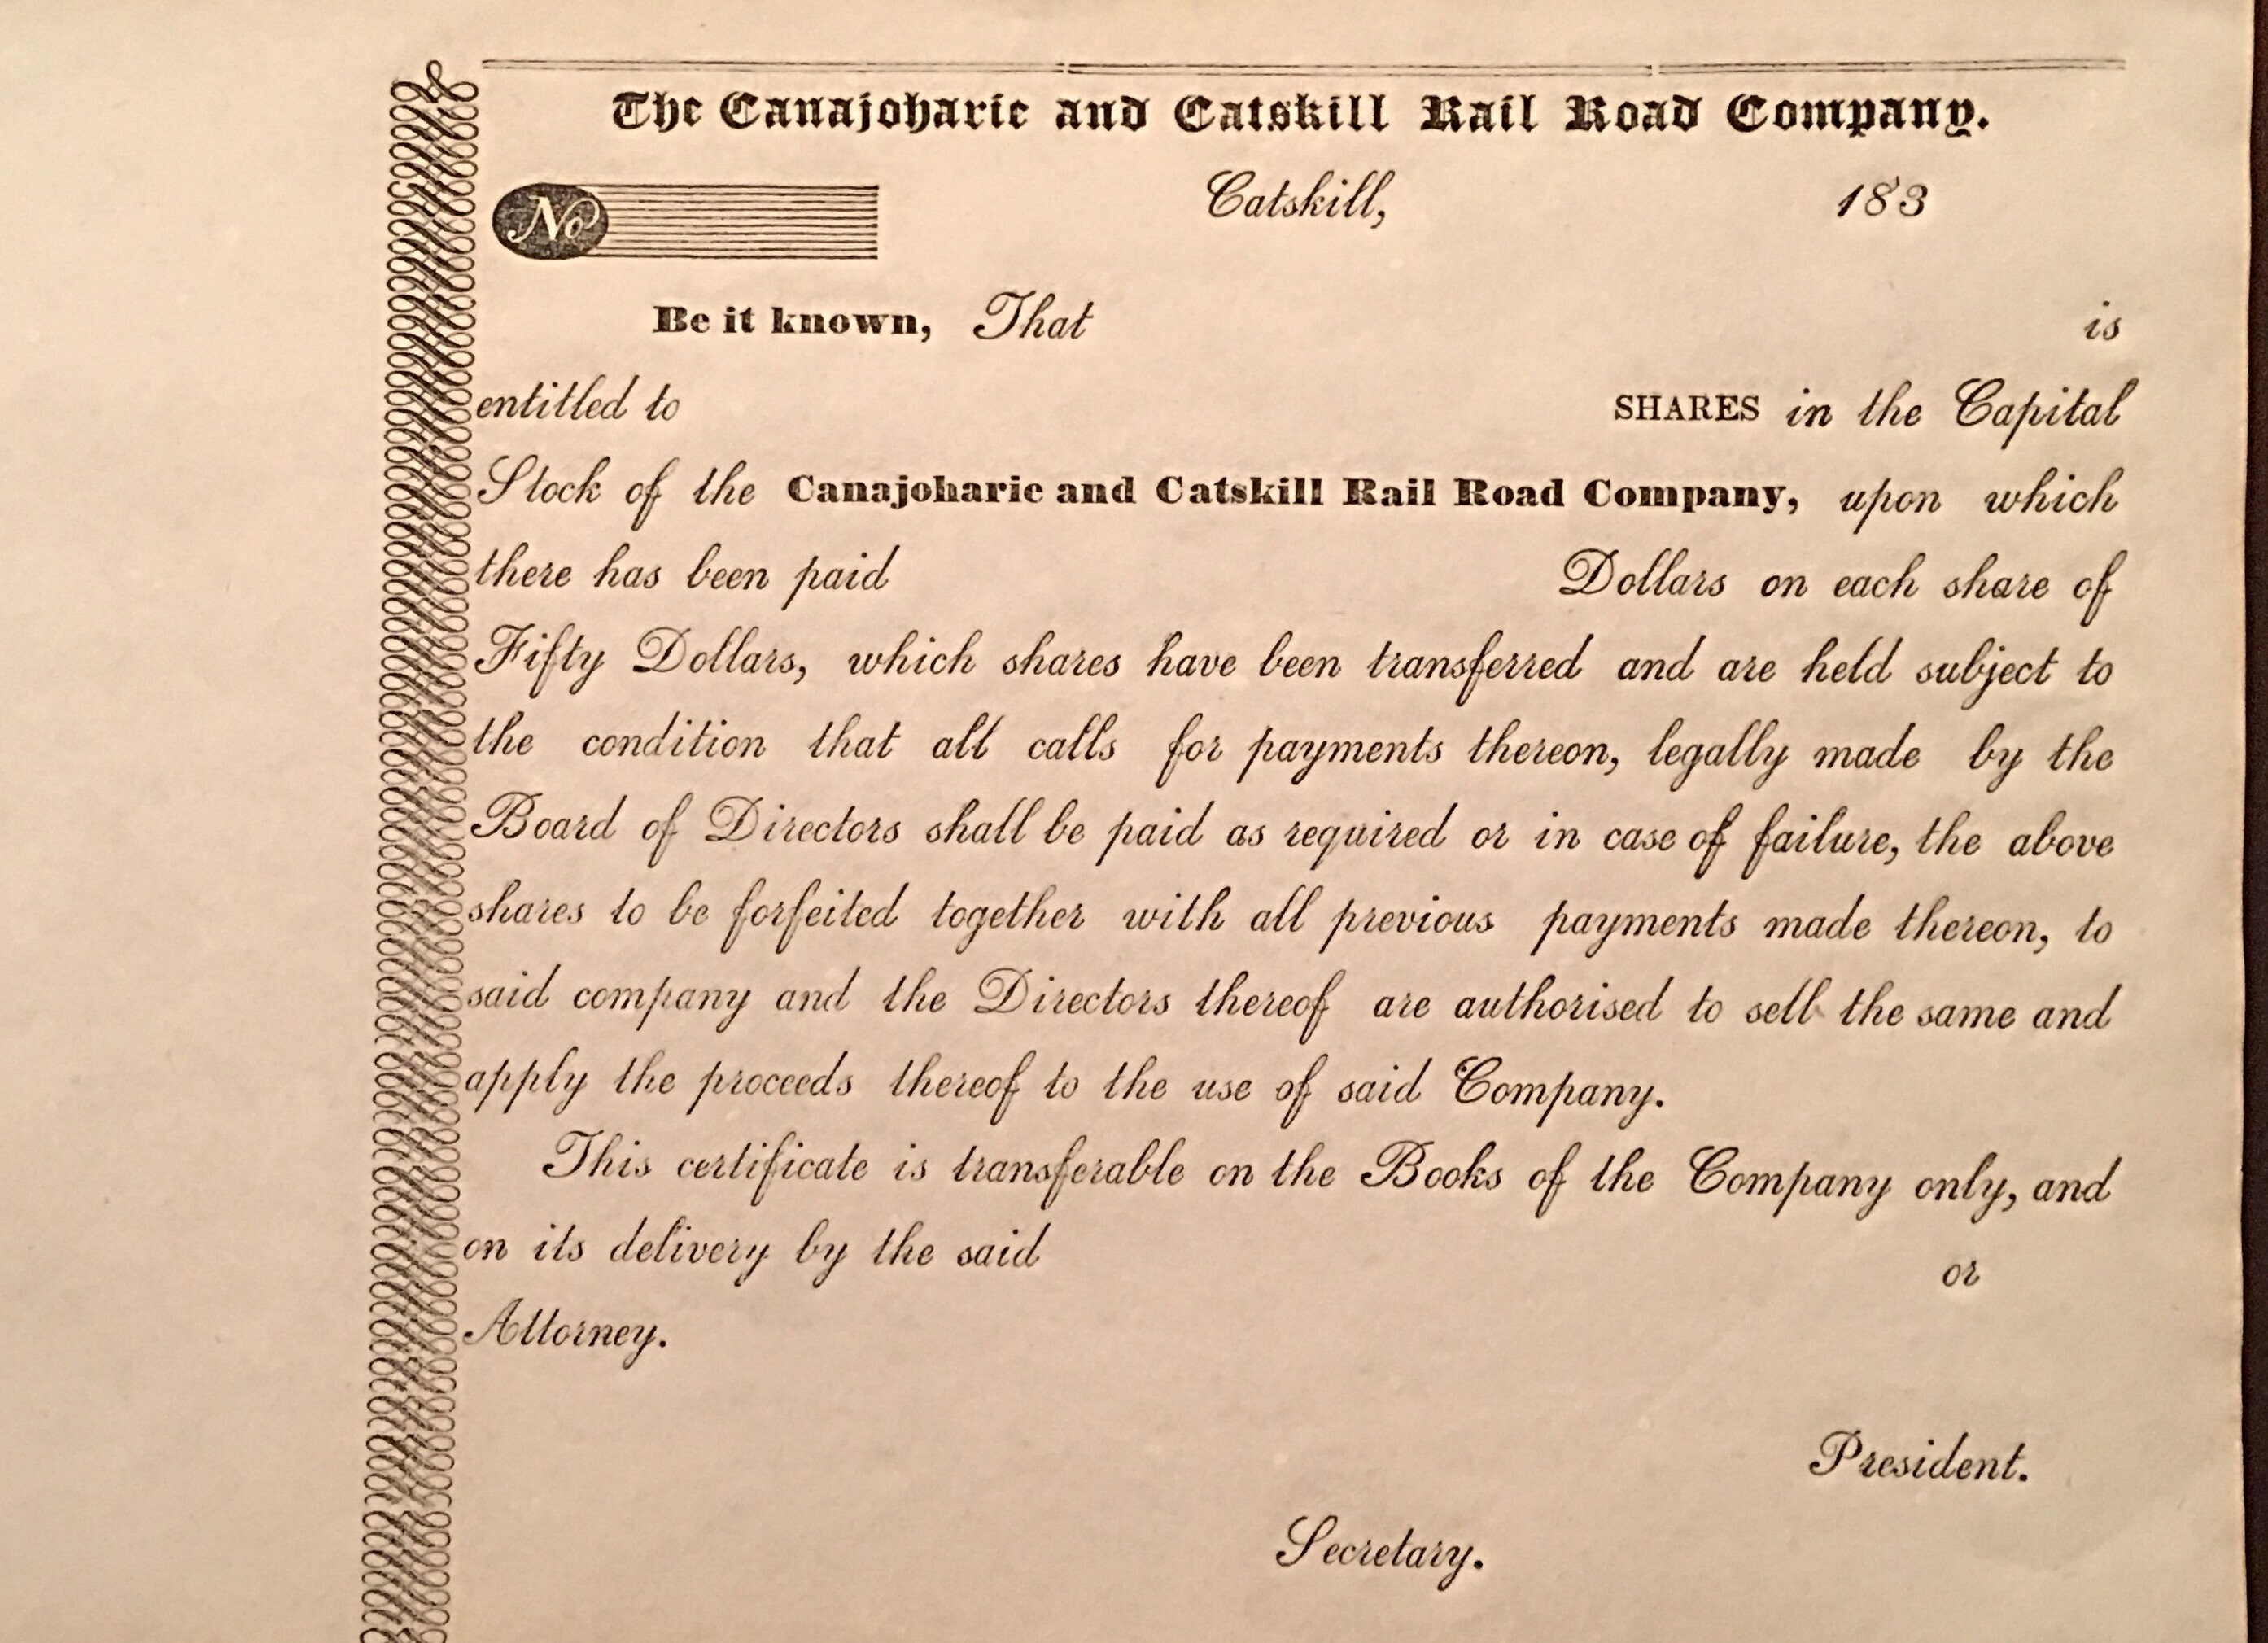 The Canajoharie and Catskill Rail Road Company.
No Catskill, 183
Be it known, That is
entitled to SHARES in the Capital
Stock of the Canajoharie and Catskill Rail Road Company, upon which
there has been paid Dollars on each share of
Fifty Dollars, which shares have been transferred and are held subject to
the condition that all calls for payments thereon, legally made by the
Board of Directors shall be paid as required or in case of failure, the above
shares to be forfeited together with all previous payments made thereon, to
said company and the Directors thereof are authorised to sell the same and
apply the proceeds thereof to the use of said Company.
This certificate is transferable on the Books of the Company only, and
on its delivery by the said or
Attorney.
President.
Secretary.